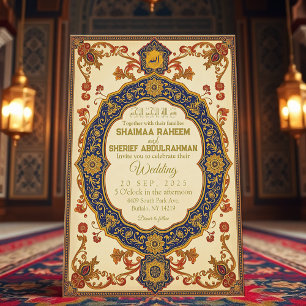 Together with their families
SHAIMAA RAHEEM
and
SHERIEF ABDULRAHMAN
Invite you to celebrate their
Wedding
20 SEP, 2025
5 O'clock in the afternoon
4409 South Park Ave.
Buffalo, NY 14219
Dinner to follow